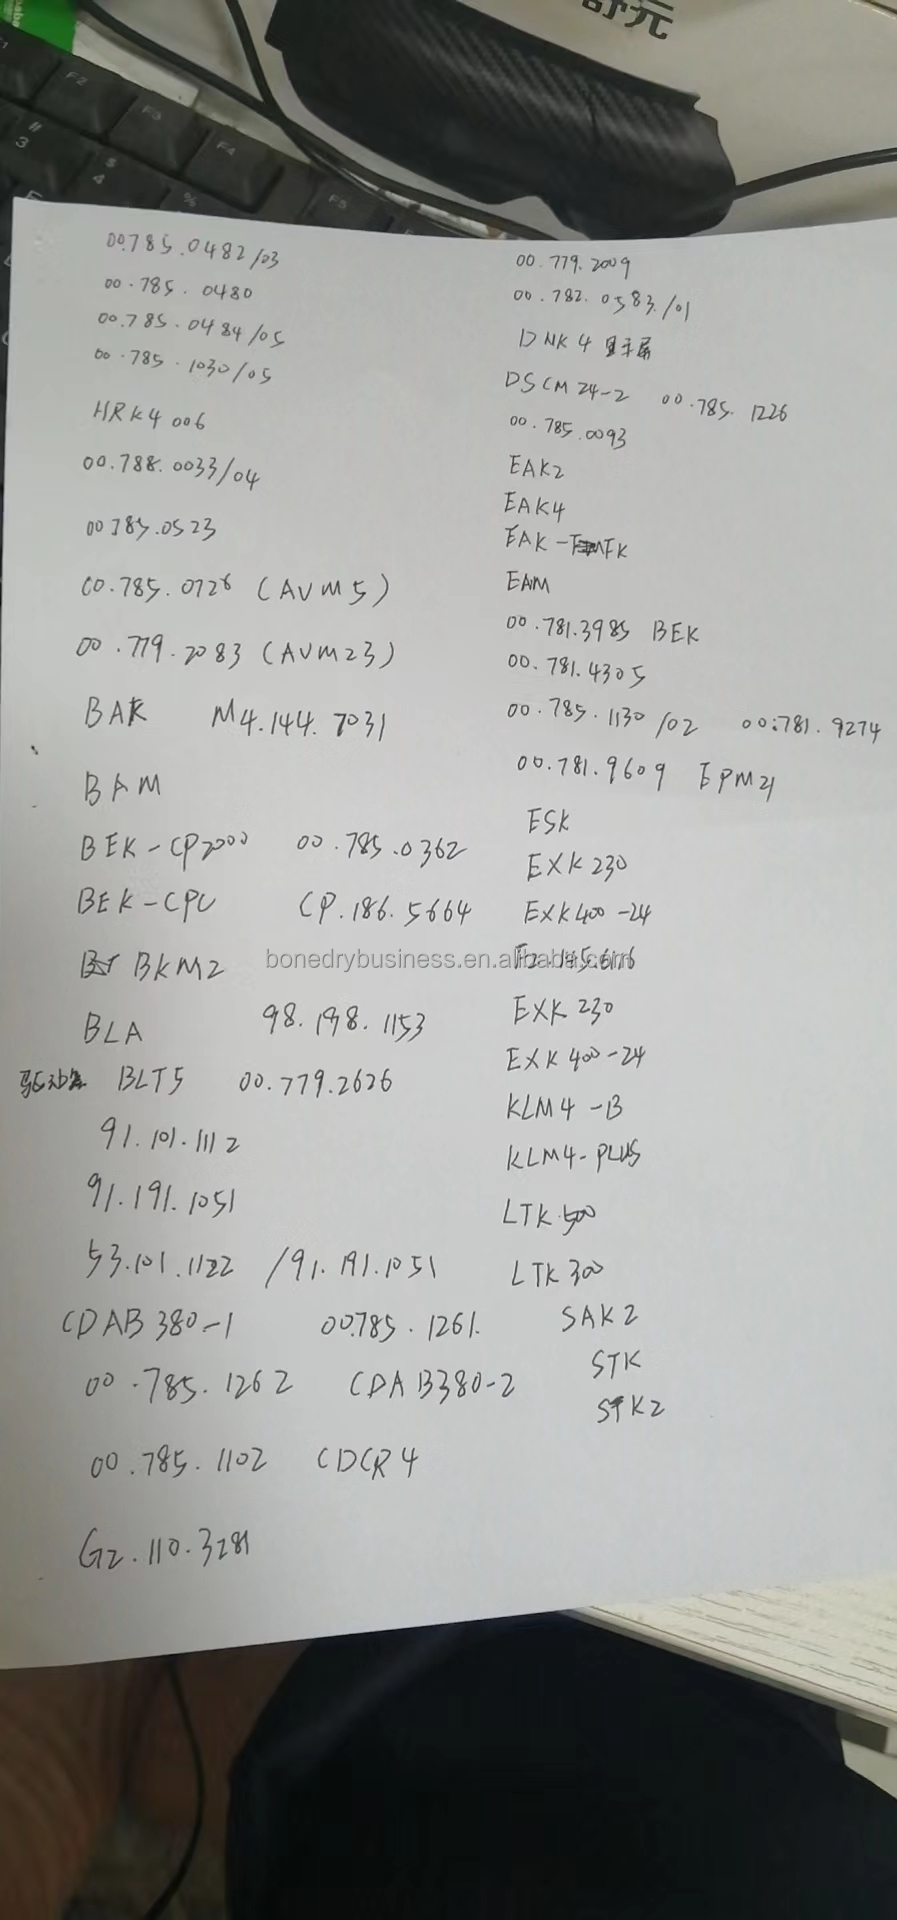 舒元
F1
F2
F3
F4
F5
#
3
$
4
%
00.785.0482/03
00.785.0480
00.785.0484/05
00.785.1030/05
HRK4 006
00.788.0033/04
00785.0523
00.785.0726 (AVM5)
00.779.2083 (AVM23)
BAK M4.144.7031
BAM
BEK-CP2000 00.785.0362
BEK-CPU CP.186.5664
BKM2
BLA 98.198.1153
BLT5 00.779.2626
91.101.1112
91.191.1051
53.101.1122 /91.191.1051
CDAB380-1 00.785.1261.
00.785.1262 CDAB380-2
00.785.1102 CDCR4
G2.110.3281
00.779.2009
00.782.0583./01
DNK4 显示屏
DSCM24-2 00.785.1226
00.785.0093
EAK2
EAK4
EAK-FK
EAM
00.781.3985 BEK
00.781.4305
00.785.1130/02 00.781.9274
00.781.9609 EPM21
ESK
EXK230
EXK400-24
bonedrybusiness.en.alibaba.com
EXK230
EXK400-24
KLM4-B
KLM4-PLUS
LTK500
LTK300
SAK2
STK
STK2